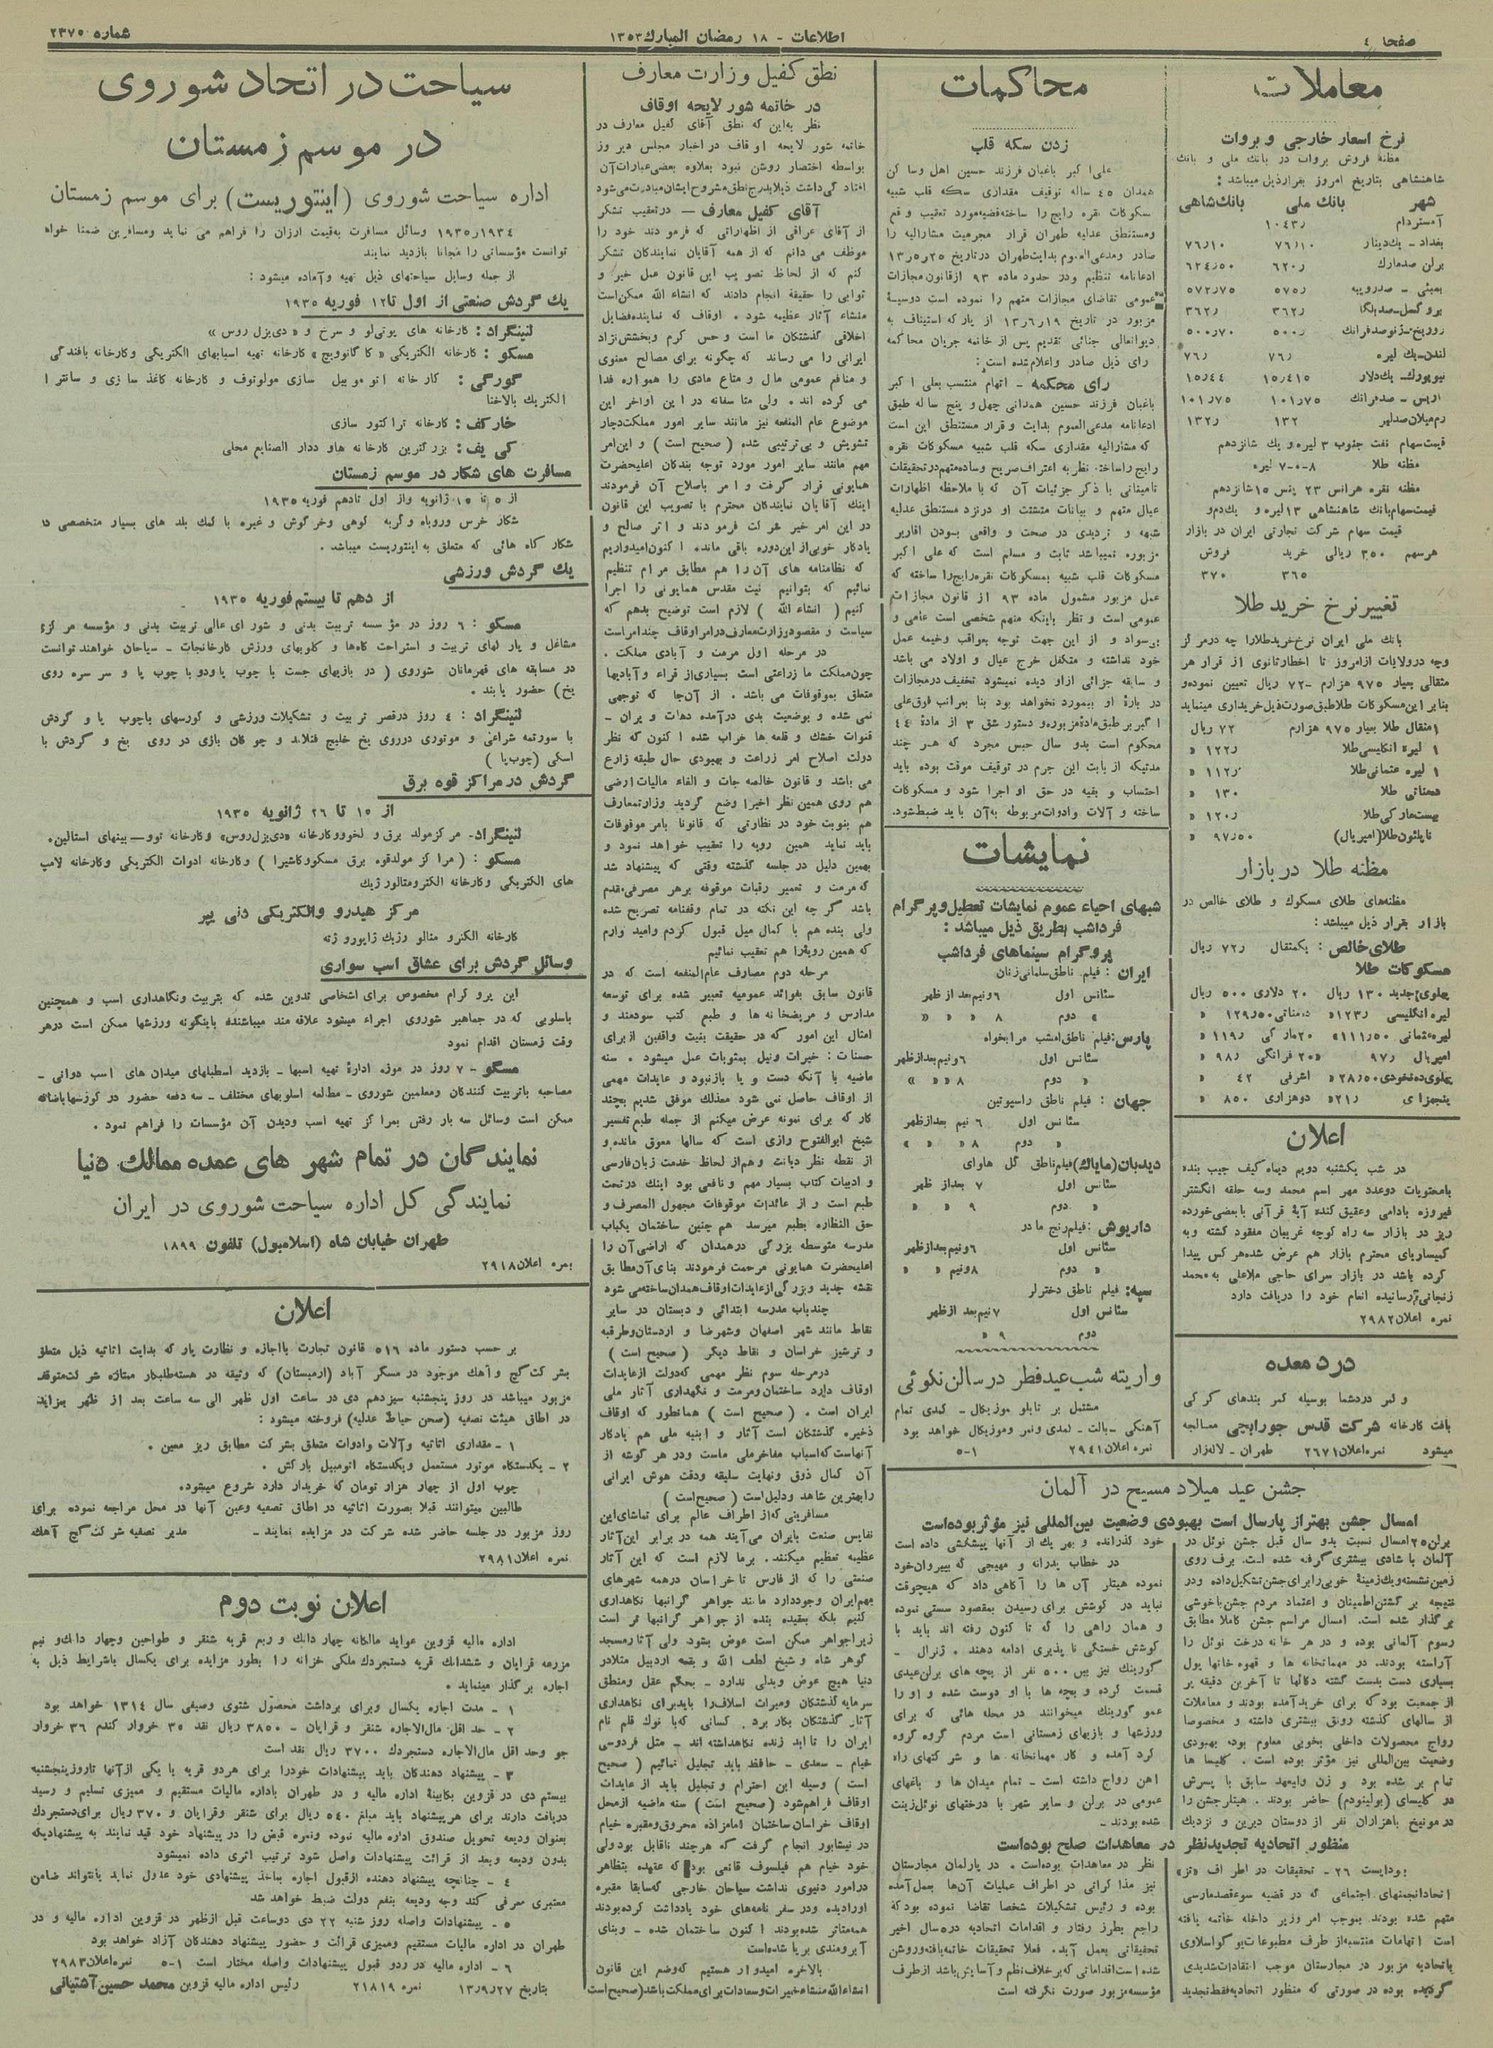 صفحا ٤
اطلاعات - ۱۸ رمضان المبارك ۱۳۵۳
شماره ۲۳۷۵
معاملات
نرخ اسعار خارجی و بروات
مظنهٔ فروش بروات در بانك ملی و بانك
شاهنشاهی بتاریخ امروز بقرارذیل میباشد :
شهر بانك ملی بانك شاهی
آمستردام ۱۰۴۳٫
بغداد - یك دینار ۷۶٫۱۰ ۷۶٫۱۰
برلن صدمارك ۶۲۰٫ ۶۲۴٫۵۰
بمبئی - صدروپیه ۵۷۵٫ ۵۷۲٫۷۵
بروکسل-صدبلگا ۳۶۲٫ ۳۶۲٫
۵۰۰٫ ۵۰۰٫۷۰
لندن-یك لیره ۷۶٫ ۷۶٫
نیویورك- یك دلار ۱۵٫۴۱۵ ۱۵٫۴۴
صدفرانك ۱۰۱٫۷۵ ۱۰۱٫۷۵
رم میلان صدلیر ۱۳۲ ۱۳۲٫
قیمت سهام نفت جنوب ۳ لیره و یك شانزدهم
مظنه طلا ۸-۰-۷ لیره
مظنه نقره هرانس ۲۳ پنس ۱۵ شانزدهم
قیمت سهام بانك شاهنشاهی ۱۳ لیره و یك دوم
قیمت سهام شرکت تجارتی ایران در بازار
هرسهم ۳۵۰ ریالی خرید فروش
۳۶۵ ۳۷۰
تغییر نرخ خرید طلا
بانك ملی ایران نرخ خرید طلارا چه درمرکز
وچه درولایات ازامروز تا اخطار ثانوی از قرار هر
مثقالی بعیار ۹۷۵ هزارم -۷۲ ریال تعیین نموده و
بنابر این مسکوکات طلا طبق صورت ذیل خریداری مینماید
۱ مثقال طلا بعیار ۹۷۵ هزارم ۷۲ ریال
۱ لیره انگلیسی طلا ۱۲۲٫ «
۱ لیره عثمانی طلا ۱۱۲٫ «
دهمناتی طلا ۱۳۰ «
بیست مارکی طلا ۱۲۰٫ «
ناپلئون طلا (امپریال) ۹۷٫۵۰ «
مظنه طلا در بازار
مظنه‌های طلای مسکوك و طلای خالص در
بازار بقرار ذیل میباشد :
طلای خالص : یکمثقال ۷۲٫ ریال
مسکوکات طلا
پهلوی جدید ۱۳۰ ریال ۲۰ دلاری ۵۰۰ ریال
لیره انگلیسی ۱۲۳٫« دهمناتی ۱۲۹٫۵۰ «
لیره عثمانی ۱۱۱٫۵۰« ۲۰ مارکی ۱۱۹٫ «
امپریال ۹۷٫ «۲۰ فرانکی ۹۸٫ «
پهلوی ده نخودی ۲۸٫۵۰« اشرفی ۴۲ «
پنجهزاری ۲۱٫« دوهزاری ۸۵۰ «
اعلان
در شب یکشنبه دویم دیماه کیف جیب بنده
بامحتویات دوعدد مهر اسم محمد وسه حلقه انگشتر
فیروزه بادامی وعقیق کنده آیهٔ قرآنی بابعضی خورده
ریز در بازار سه راه کوچه غریبان مفقود گشته و به
کمیساریای محترم بازار هم عرض شده هر کس پیدا
کرده باشد در بازار سرای حاجی ملاعلی به محمد
زنجانی رسانیده انعام خود را دریافت دارد
نمره اعلان ۲۹۸۲
درد معده
و کمر دردشما بوسیله کمر بندهای کرکی
بافت کارخانه شرکت قدس جورابچی معالجه
میشود نمره اعلان ۲۶۷۱ طهران - لاله زار
محاکمات
زدن سکه قلب
علی اکبر باغبان فرزند حسین اهل وساکن
همدان ۴۵ ساله توقیف مقداری سکه قلب شبیه
مسکوکات نقره رایج را ساخته قضیه مورد تعقیب و قم
ومستنطق عدلیه طهران قرار مجرمیت مشارالیه را
صادر ومدعی العموم بدایت طهران درتاریخ ۱۳٫۵٫۲۵
ادعانامه تنظیم ودر حدود ماده ۹۳ ازقانون مجازات
عمومی تقاضای مجازات متهم را نموده است دوسیهٔ
مزبور در تاریخ ۱۳٫۶٫۱۹ از پارکه استیناف به
دیوانعالی جنائی تقدیم پس از خاتمه جریان محاکمه
رای ذیل صادر واعلام شده است :
رای محکمه - اتهام منتسب بعلی اکبر
باغبان فرزند حسین همدانی چهل و پنج ساله طبق
ادعانامه مدعی العموم بدایت و قرار مستنطق این است
که مشارالیه مقداری سکه قلب شبیه مسکوکات نقره
رایج راساخته نظر به اعتراف صریح وساده متهم درتحقیقات
تامیناتی با ذکر جزئیات آن که با ملاحظه اظهارات
عیال متهم و بیانات متشتت او درنزد مستنطق عدلیه
شبهه و تردیدی در صحت و واقعی بودن اقاریر
مزبوره نمیباشد ثابت و مسلم است که علی اکبر
مسکوکات قلب شبیه بمسکوکات نقره رایج را ساخته که
عمل مزبور مشمول ماده ۹۳ از قانون مجازات
عمومی است و نظر باینکه متهم شخصی است عامی و
بی سواد و از این جهت توجه بعواقب وخیمه عمل
خود نداشته و متکفل خرج عیال و اولاد می باشد
و سابقه جزائی ازاو دیده نمیشود تخفیف درمجازات
در بارهٔ او بیمورد نخواهد بود بنا بمراتب فوق علی
اکبر بر طبق مادهٔ مزبوره و دستور شق ۳ از مادهٔ ٤٤
محکوم است بدو سال حبس مجرد که هر چند
مدتیکه از بابت این جرم در توقیف موقت بوده باید
احتساب و بقیه در حق او اجرا شود و مسکوکات
ساخته و آلات وادوات مربوطه به آن باید ضبط شود.
نمایشات
شبهای احیاء عموم نمایشات تعطیل و پرگرام
فرداشب بطریق ذیل میباشد :
پروگرام سینماهای فرداشب
ایران : فیلم ناطق سلمانی زنان
سئانس اول ۶ونیم بعد از ظهر
« دوم ۸ « « «
پارس: فیلم ناطق امشب مرا بخواه
سئانس اول ۶ونیم بعدازظهر
« دوم ۸ « « «
جهان : فیلم ناطق راسپوتین
سئانس اول ۶ نیم بعدازظهر
« دوم ۸ « « «
دیدبان (مایاك) فیلم ناطق گل هاوای
سئانس اول ۷ بعداز ظهر
« دوم ۹ « «
داریوش : فیلم رنج مادر
سئانس اول ۶ونیم بعدازظهر
« دوم ۸ونیم « «
سپه: فیلم ناطق دختر لر
سئانس اول ۷ نیم بعد ازظهر
دوم ۹ «
واریته شب عید فطر در سالن نکوئی
مشتمل بر تابلو موزیکال - کمدی تمام
آهنگی - بالت - کمدی ونمر وموزیکال خواهد بود
نمره اعلان ۲۹۴۱ ۱-۵
جشن عید میلاد مسیح در آلمان
امسال جشن بهتر از پارسال است بهبودی وضعیت بین المللی نیز مؤثر بوده است
برلن ۲۵ امسال نسبت بدو سال قبل جشن نوئل در
آلمان با شادی بیشتری گرفته شده است. برف روی
زمین نشسته ویك زمینهٔ خوبی را برای جشن تشکیل داده ودر
نتیجه برگشتن اطمینان و اعتماد مردم جشن باخوشی
برگذار شده است. امسال مراسم جشن کاملا مطابق
رسوم آلمانی بوده و در هر خانه درخت نوئل را
آراسته بودند. در مهمانخانه ها و قهوه خانها پول
بسیاری دست بدست گشته دکانها تا آخرین دقیقه پر
از جمعیت بود که برای خرید آمده بودند و معاملات
از سالهای گذشته رونق بیشتری داشته و مخصوصا
رواج محصولات داخلی بخوبی معلوم بود. بهبودی
وضعیت بین المللی نیز مؤثر بوده است . کلیسا ها
تمام پر شده بود و زن ولیعهد سابق با پسرش
در کلیسای (بولینودم) حاضر بودند. هیتلر جشن را
در مونیخ باهزاران نفر از دوستان دیرین و نزدیك
خود گذرانده و بهر یك از آنها پیشکشی داده است
در خطاب پدرانه و مهیجی که بپیروان خود
نموده هیتلر آن ها را آگاهی داد که هیچوقت
نباید در کوشش برای رسیدن بمقصود سستی نموده
و همان راهی را که تا کنون رفته اند باید با
کوشش خستگی نا پذیری ادامه دهند . ژنرال -
گورینك نیز بین ۵۰۰ نفر از بچه های برلن عیدی
قسمت کرده و بچه ها با او دوست شده و او را
عمو گورینك میخوانند در محله هائی که برای
ورزشها و بازیهای زمستانی است مردم گروه گروه
گرد آمده و کار مهمانخانه ها و شرکتهای راه
آهن رواج داشته است - تمام میدان ها و باغهای
عمومی در برلن و سایر شهر با درختهای نوئل زینت
شده بودند -
منظور اتحادیه تجدیدنظر در معاهدات صلح بوده است
بوداپست ۲۶ - تحقیقات در اطراف «تز»
اتحاد انجمنهای اجتماعی که در قضیه سوءقصد مارسی
متهم شده بودند بموجب امر وزیر داخله خاتمه یافته
است اتهامات منتسبه از طرف مطبوعات یوگوسلاوی
باتحادیه مزبور در مجارستان موجب انتقادات شدیدی
گردیده بوده در صورتی که منظور اتحادیه فقط تجدید
نظر در معاهدات بوده است . در پارلمان مجارستان
نیز مذاکراتی در اطراف عملیات آن‌ها بعمل آمده
بوده و رئیس تشکیلات شخصا تقاضا نموده بود که
راجع بطرز رفتار و اقدامات اتحادیه در ۵ سال اخیر
تحقیقاتی بعمل آید. فعلا تحقیقات خاتمه یافته و روشن
شده است اقداماتی که برخلاف نظم و آسایش باشد ازطرف
مؤسسه مزبور صورت نگرفته است
نطق کفیل وزارت معارف
در خاتمه شور لایحه اوقاف
نظر به‌این که نطق آقای کفیل معارف در
خاتمه شور لایحه اوقاف در اخبار مجلس دیروز
بواسطه اختصار روشن نبود بعلاوه بعضی عبارات آن
افتادگی داشت ذیلا بدرج نطق مشروح ایشان مبادرت می‌شود
آقای کفیل معارف - درتعقیب تشکر
از آقای عراقی از اظهاراتی که فرمودند خود را
موظف می دانم که از همه آقایان نمایندگان تشکر
کنم که از لحاظ تصویب این قانون عمل خیر و
ثوابی را حقیقة انجام دادند که انشاء الله ممکن است
منشاء آثار عظیمه شود . اوقاف که نماینده فضایل
اخلاقی گذشتگان ما است و حس کرم وبخشش نژاد
ایرانی را می رساند که چگونه برای مصالح معنوی
و منافع عمومی مال و متاع مادی را همواره فدا
می کرده اند . ولی متاسفانه در این اواخر این
موضوع عام المنفعه نیز مانند سایر امور مملکت دچار
تشویش و بی‌ترتیبی شده (صحیح است) و این امر
مهم مانند سایر امور مورد توجه بندگان اعلیحضرت
همایونی قرار گرفت و امر باصلاح آن فرمودند
اینك آقایان نمایندگان محترم با تصویب این قانون
در این امر خیر شرکت فرمودند و اثر صالح و
یادگار خوبی از این دوره باقی مانده اکنون امیدواریم
که نظامنامه های آن را هم مطابق مرام تنظیم
نمائیم که بتوانیم نیت مقدس همایونی را اجرا
کنیم ( انشاء الله ) لازم است توضیح بدهم که
سیاست و مقصود وزارت معارف در امر اوقاف چند امر است
در مرحله اول مرمت و آبادی مملکت .
چون مملکت ما زراعتی است بسیاری از قراء و آبادیها
متعلق بموقوفات می باشد . از آن‌جا که توجهی
نمی شده و بوضعیت بدی درآمده دهات ویران -
قنوات خشك و قلعه ها خراب شده اکنون که نظر
دولت اصلاح امر زراعت و بهبودی حال طبقه زارع
می باشد و قانون خالصه جات و الغاء مالیات ارضی
هم روی همین نظر اخیرا وضع گردید وزارتمعارف
هم بنوبت خود در نظارتی که قانونا بامر موقوفات
باید نماید همین رویه را تعقیب خواهد نمود و
بهمین دلیل در جلسه گذشته وقتی که پیشنهاد شد
که مرمت و تعمیر رقبات موقوفه برهر مصرفی مقدم
باشد گرچه این نکته در تمام وقفنامه تصریح شده
ولی بنده هم با کمال میل قبول کردم وامید وارم
که همین رویه را هم تعقیب نمائیم
مرحله دوم مصارف عام المنفعه است که در
قانون سابق بفوائد عمومیه تعبیر شده برای توسعه
مدارس و مریضخانه ها و طبع کتب سودمند و
امثال این امور که در حقیقت بنیت واقفین ازبرای
حسنات : خیرات ونیل بمثوبات عمل میشود . سنه
ماضیه با آنکه دست و پا بازنبود و عایدات مهمی
از اوقاف حاصل نمی شود معذلك موفق شدیم بچند
کار که برای نمونه عرض میکنم از جمله طبع تفسیر
شیخ ابوالفتوح رازی است که سالها معوق مانده و
از نقطه نظر دیانت وهم از لحاظ خدمت زبان فارسی
و ادبیات کتاب بسیار مهم و نافعی بود اینك درتحت
طبع است و از عائدات موقوفات مجهول المصرف و
حق النظاره بطبع میرسد هم چنین ساختمان یکباب
مدرسه متوسطه بزرگی درهمدان که اراضی آن را
اعلیحضرت همایونی مرحمت فرمودند بنای آن مطابق
نقشه جدید وبزرگی از عایدات اوقاف همدان ساخته می شود
چندباب مدرسه ابتدائی و دبستان در سایر
نقاط مانند شهر اصفهان وشهرضا و اردستان وطرقبه
و ترشیز خراسان و نقاط دیگر (صحیح است)
درمرحله سوم نظر مهمی که دولت ازعایدات
اوقاف دارد ساختمان ومرمت و نگهداری آثار ملی
ایران است . (صحیح است) همانطور که اوقاف
ذخیره گذشتگان است آثار و ابنیه ملی هم یادگار
آنهاست که اسباب مفاخر ملی ماست ودر هر گوشه از
آن کمال ذوق ونهایت سلیقه ودقت هوش ایرانی
رابهترین شاهد ودلیل است (صحیح است)
مسافرینی که از اطراف عالم برای تماشای این
نفایس صنعت بایران می‌آیند همه در برابر این آثار
عظیمه تعظیم میکنند. برما لازم است که این آثار
صنعتی را که از فارس تا خراسان درهمه شهرهای
مهم ایران وجود دارد مانند جواهر گرانبها نگاهداری
کنیم بلکه بعقیده بنده از جواهر گرانبها تر است
زیرا جواهر ممکن است عوض بشود. ولی آثار مسجد
گوهر شاد و شیخ لطف الله و بقعه اردبیل مثلا در
دنیا هیچ عوض وبدلی ندارد - بحکم عقل ومنطق
سرمایه گذشتگان ومیراث اسلاف را باید برای نگاهداری
آثار گذشتگان بکار برد . کسانی که با نوك قلم نام
ایران را تا ابد زنده نگاهداشته اند - مثل فردوسی
خیام - سعدی - حافظ باید تجلیل نمائیم (صحیح
است) وسیله این احترام و تجلیل باید از عایدات
اوقاف فراهم شود (صحیح است) سنه ماضیه ازمحل
اوقاف خراسان ساختمان امامزاده محروق ومقبره خیام
در نیشابور انجام گرفت که هرچند ناقابل بود ولی
خود خیام هم فیلسوف قانعی بود که عقیده بتظاهر
درامور دنیوی نداشت سیاحان خارجی که سابقا مقبره
اورادیده ودر سفر نامه‌های خود یادداشت کرده بودند
همه متأثر شده بودند اکنون ساختمان شده - وبنای
آبرومندی برپا شده است
بالاخره امیدوار هستیم که وضع این قانون
انشاء الله منشاء خیرات وسعادات برای مملکت باشد (صحیح است)
سیاحت در اتحاد شوروی
در موسم زمستان
اداره سیاحت شوروی (اینتوریست) برای موسم زمستان
۱۹۳۵٫۱۹۳۴ وسائل مسافرت به‌قیمت ارزان را فراهم می نماید ومسافرین ضمنا خواهند
توانست مؤسساتی را مجانا بازدید نمایند
از جمله وسایل سیاحتهای ذیل تهیه وآماده میشود :
یك گردش صنعتی از اول تا ۱۲ فوریه ۱۹۳۵
لنینگراد : کارخانه های پوتی‌لو و سرخ و «دیزل روس»
مسکو : کارخانه الکتریکی «کاگانوویچ» کارخانه تهیه اسبابهای الکتریکی وکارخانه بافندگی
گورگی : کارخانه اتوموبیل سازی مولوتوف و کارخانه کاغذ سازی و سانترال
الکتریك بالاخنا
خارکف : کارخانه تراکتور سازی
کی یف : بزرگترین کارخانه هاو ددار الصنایع محلی
مسافرت های شکار در موسم زمستان
از ۵ تا ۱۵ ژانویه واز اول تادهم فوریه ۱۹۳۵
شکار خرس وروباه وگربه کوهی وخرگوش و غیره با کمك بلد های بسیار متخصصی در
شکارگاه هائی که متعلق به اینتوریست میباشد .
یك گردش ورزشی
از دهم تا بیستم فوریه ۱۹۳۵
مسکو : ۶ روز در مؤسسه تربیت بدنی و شورای عالی تربیت بدنی و مؤسسه مرکزی
مشاغل و پارکهای تربیت و استراحت گاه‌ها و کلوبهای ورزش کارخانجات - سیاحان خواهند توانست
در مسابقه های قهرمانان شوروی ( در بازیهای جست با چوب پا ودو با چوب پا و سرسره روی
یخ) حضور یابند .
لنینگراد : ٤ روز درقصر تربیت و تشکیلات ورزشی و کورسهای باچوب پا و گردش
با سورتمه شراعی و موتوری درروی یخ خلیج فنلاند و چوگان بازی در روی یخ و گردش با
اسکی (چوب پا)
گردش در مراکز قوه برق
از ۱۵ تا ۲۶ ژانویه ۱۹۳۵
لنینگراد- مرکز مولد برق ولخوو وکارخانه «دیزل روس» وکارخانه نوو-بینهای استالین.
مسکو : (مراکز مولدقوه برق مسکووکاشیرا) وکارخانه ادوات الکتریکی وکارخانه لامپ
های الکتریکی وکارخانه الکترومتالورژیك
مرکز هیدرو والکتریکی دنی پپر
کارخانه الکترو متالورژیك زاپوروژیه
وسائل گردش برای عشاق اسب سواری
این پروگرام مخصوص برای اشخاصی تدوین شده که بتربیت ونگاهداری اسب و همچنین
باسلوبی که در جماهیر شوروی اجراء میشود علاقه مند میباشند باینگونه ورزشها ممکن است درهر
وقت زمستان اقدام نمود
مسکو - ۷ روز در موزه ادارهٔ تهیه اسبها - بازدید اسطبلهای میدان های اسب دوانی -
مصاحبه باتربیت کنندگان ومعلمین شوروی - مطالعه اسلوبهای مختلف - سه دفعه حضور در کورسها باضافه
ممکن است وسائل سه بار رفتن بمراکز تهیه اسب ودیدن آن مؤسسات را فراهم نمود .
نمایندگان در تمام شهر های عمده ممالك دنیا
نمایندگی کل اداره سیاحت شوروی در ایران
طهران خیابان شاه (اسلامبول) تلفون ۱۸۹۹
نمره اعلان ۲۹۱۸
اعلان
بر حسب دستور ماده ۵۱۶ قانون تجارت بااجازه و نظارت پارکه بدایت اثاثیه ذیل متعلق
بشرکت گچ و آهك موجود در مسگر آباد (ارمنستان) که وثیقه در هسته طلبکار ممتازه شرکت متوقف
مزبور میباشد در روز پنجشنبه سیزدهم دی در ساعت اول ظهر الی سه ساعت بعد از ظهر بمزایده
در اطاق هیئت تصفیه (صحن حیاط عدلیه) فروخته میشود :
۱ - مقداری اثاثیه وآلات وادوات متعلق بشرکت مطابق ریز معین .
۲ - یکدستگاه موتور مستعمل ویکدستگاه اتومبیل بارکش .
چوب اول از چهار هزار تومان که خریدار دارد شروع میشود.
طالبین میتوانند قبلا بصورت اثاثیه در اطاق تصفیه وعین آنها در محل مراجعه نموده برای
روز مزبور در جلسه حاضر شده شرکت در مزایده نمایند - مدیر تصفیه شرکت گچ آهك
نمره اعلان ۲۹۸۱
اعلان نوبت دوم
اداره مالیه قزوین عواید مالکانه چهار دانك و ربع قریه شنقر و طواحین وچهار دانك و نیم
مزرعه قرایان و ششدانك قریه دستجردك ملکی خزانه را بطور مزایده برای یکسال باشرایط ذیل به
اجاره برگذار مینماید .
۱ - مدت اجاره یکسال وبرای برداشت محصول شتوی وصیفی سال ۱۳۱۴ خواهد بود
۲ - حد اقل مال الاجاره شنقر و قرایان - ۳۸۵۰ ریال نقد ۳۵ خروار گندم ۳۶ خروار
جو وحد اقل مال الاجاره دستجردك ۳۷۰۰ ریال نقد است
۳ - پیشنهاد دهندگان باید پیشنهادات خودرا برای هردو قریه با یکی ازآنها تاروز پنجشنبه
بیستم دی در قزوین بکابینهٔ اداره مالیه و در طهران باداره مالیات مستقیم و ممیزی تسلیم و رسید
دریافت دارند برای هر پیشنهاد باید مبلغ ۵۴۰ ریال برای شنقر وقرایان و ۳۷۰ ریال برای دستجردك
بعنوان ودیعه تحویل صندوق اداره مالیه نموده ونمره قبض را در پیشنهاد خود قید نمایند به پیشنهادیکه
بدون ودیعه وبعد از قرائت پیشنهادات واصل شود ترتیب اثری داده نمیشود
٤ - چنانچه پیشنهاد دهنده ازقبول اجاره بماخذ پیشنهادی خود عدول نماید یانتواند ضامن
معتبری معرفی کند وجه ودیعه بنفع دولت ضبط خواهد شد
۵ - پیشنهادات واصله روز شنبه ۲۲ دی دوساعت قبل ازظهر در قزوین اداره مالیه و در
طهران در اداره مالیات مستقیم وممیزی قرائت و حضور پیشنهاد دهندگان آزاد خواهد بود
۶ - اداره مالیه در ردو قبول پیشنهادات واصله مختار است ۱-۵ نمره اعلان ۲۹۸۳
بتاریخ ۱۳٫۹٫۲۷ نمره ۲۱۸۱۹ رئیس اداره مالیه قزوین محمد حسین آشتیانی